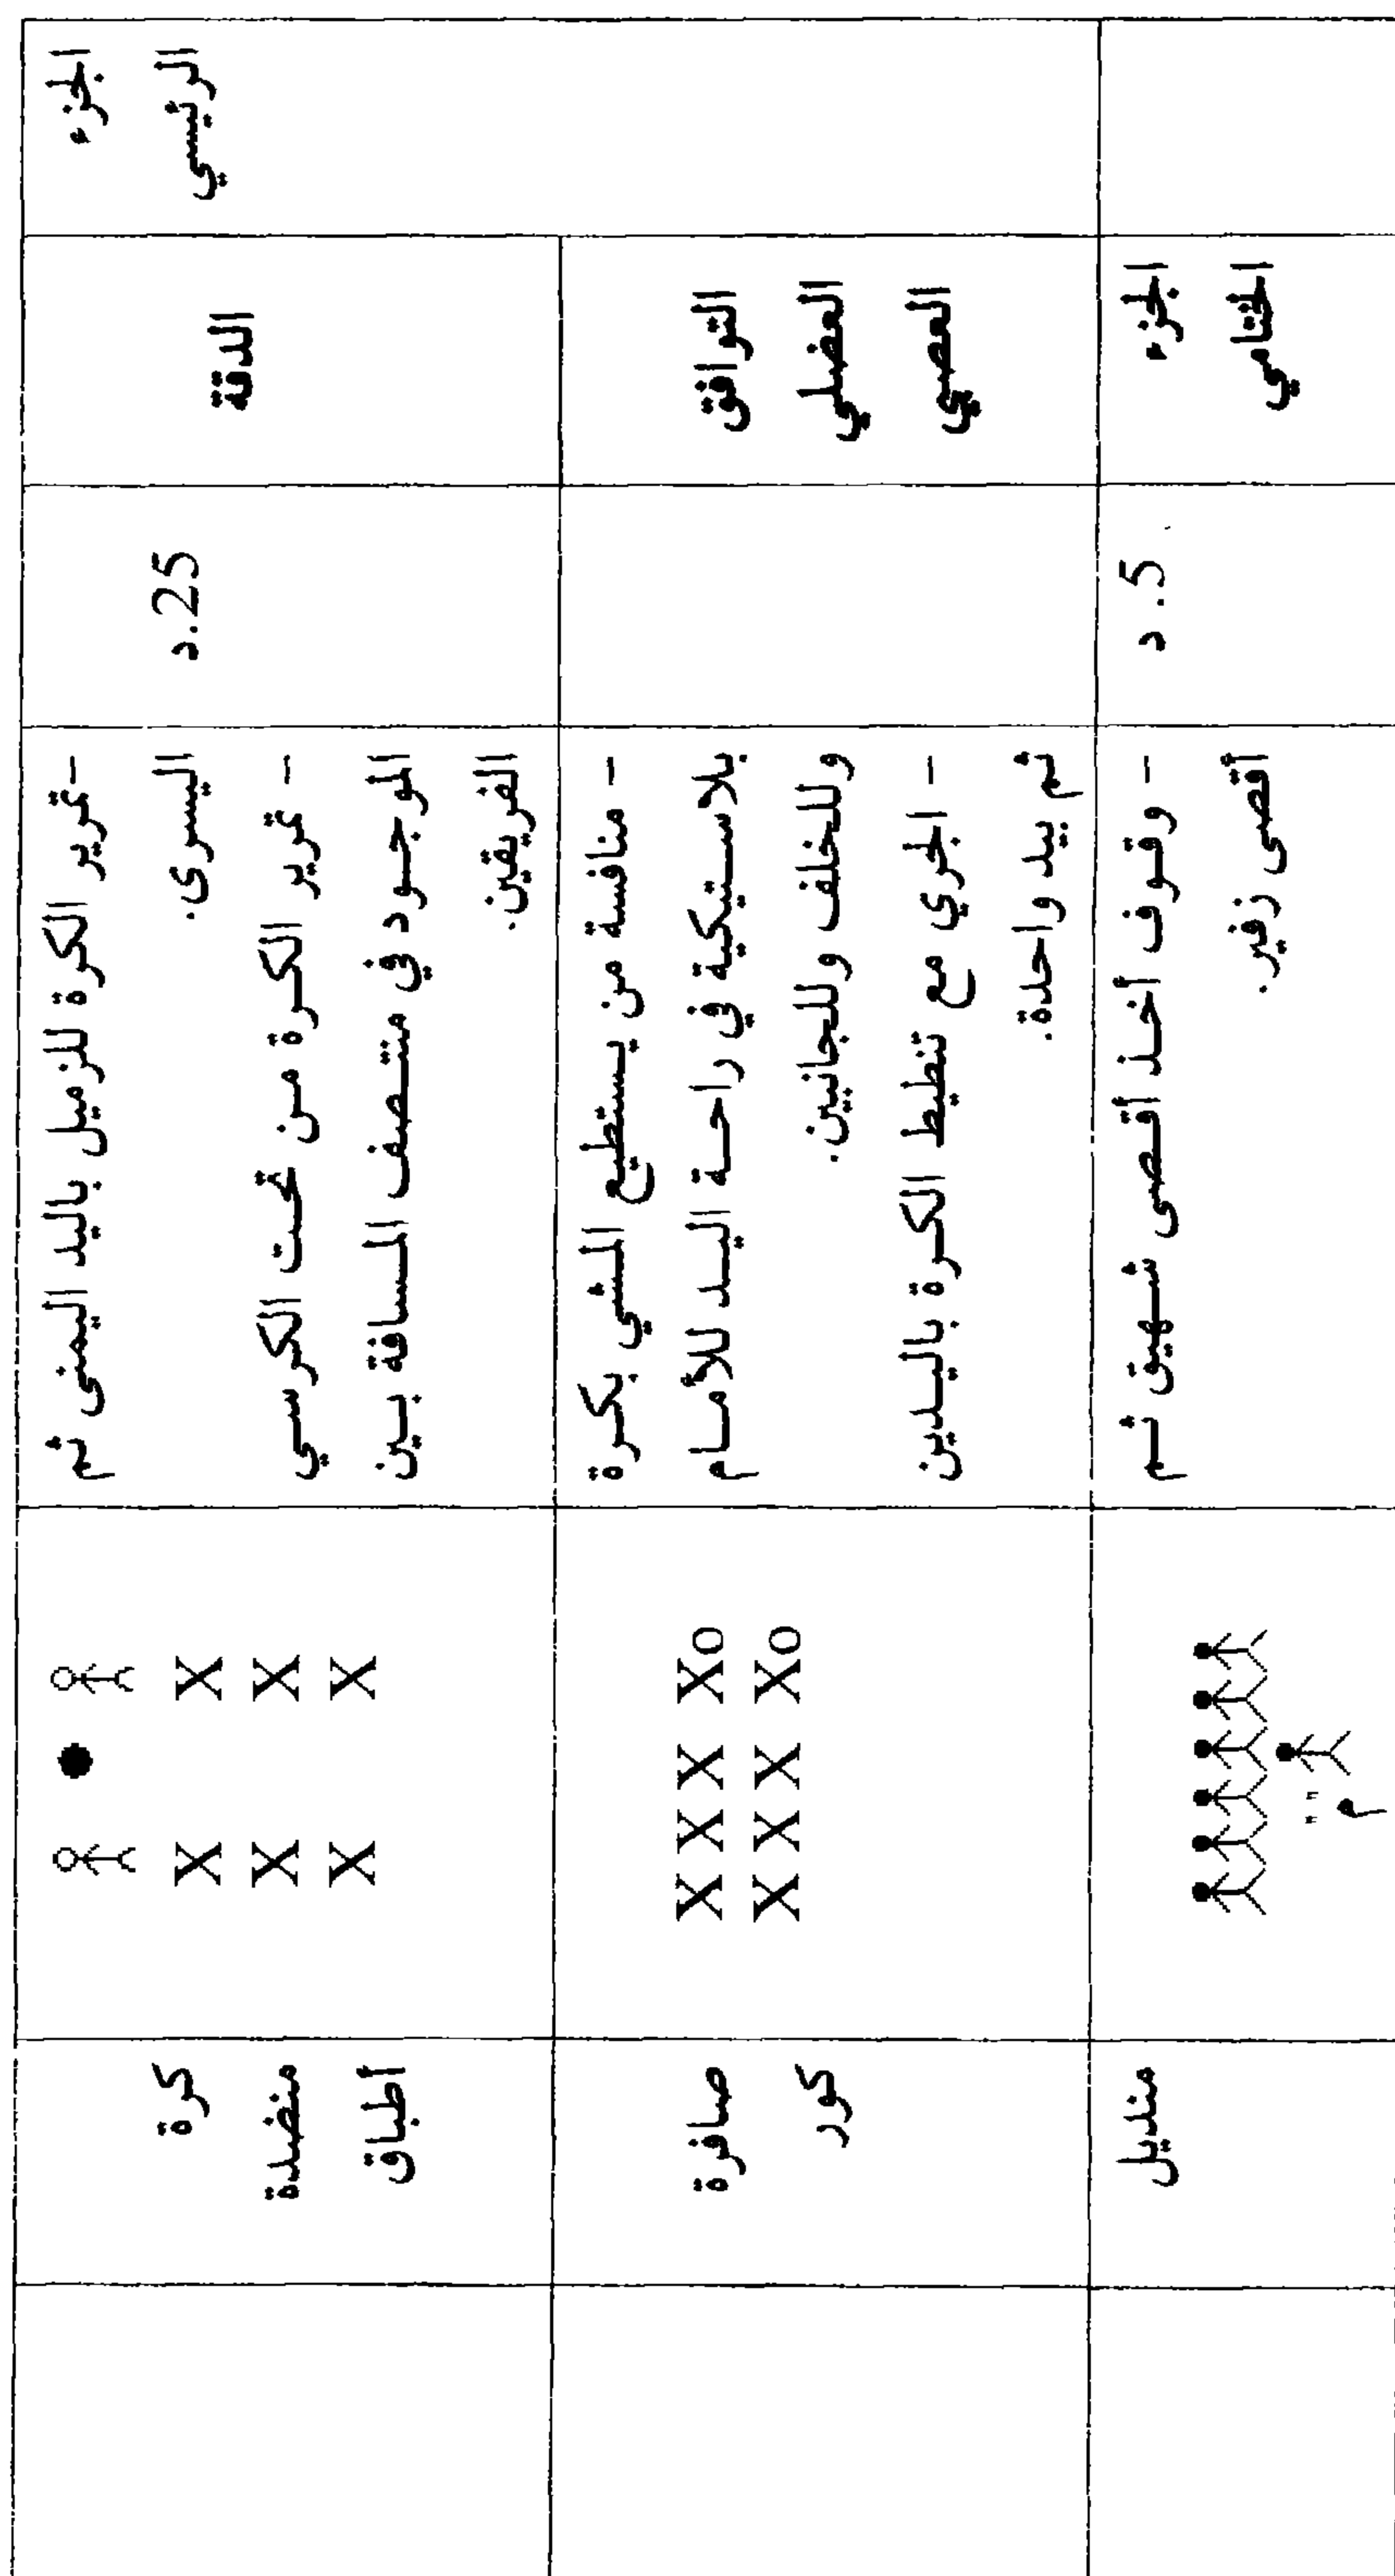 الجزء
الرئيسي
الدقة
25.د
-تمرير الكرة للزميل باليد اليمنى ثم
اليسرى.
- تمرير الكرة من تحت الكرسي
الموجود في منتصف المسافة بين
الفريقين.
X X
X X
X X
كرة
منضدة
أطباق
التوافق
العضلي
العصبي
- منافسة من يستطيع المشي بكرة
بلاستيكية في راحة اليد للأمام
وللخلف وللجانبين.
- الجري مع تنطيط الكرة باليدين
ثم بيد واحدة.
X X X Xo
X X X Xo
صافرة
كور
الجزء
الختامي
5. د
- وقوف أخذ أقصى شهيق ثم
أقصى زفير.
"م"
منديل